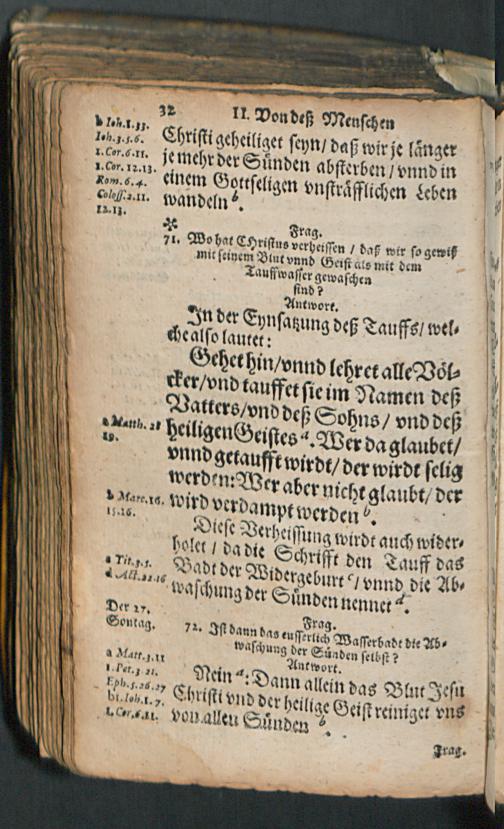 32 II. Von deß Menschen
Christi geheiliget seyn/ daß wir je länger
je mehr der Sünden absterben/ vnnd in
einem Gottseligen vnsträfflichen Leben
wandeln b.
b Ioh.1.33.
Ioh.3.5.6.
1.Cor.6.11.
1.Cor.12.13.
Rom.6.4.
Coloss.2.11.
12.13.
✻
Frag.
71. Wo hat CHristus verheissen / daß wir so gewiß
mit seinem Blut vnnd Geist als mit dem
Tauffwasser gewaschen
sind?
Antwort.
In der Eynsatzung deß Tauffs/ wel-
che also lautet:
Gehet hin/ vnnd lehret alle Völ-
cker/ vnd tauffet sie im Namen deß
Vatters/ vnd deß Sohns/ vnd deß
heiligen Geistes a. Wer da glaubet/
vnnd getaufft wirdt/ der wirdt selig
werden: Wer aber nicht glaubt/ der
wird verdampt werden b.
a Matth. 28
19.
b Marc.16.
15.16.
Diese Verheissung wirdt auch wider-
holet / da die Schrifft den Tauff das
Badt der Widergeburt c/ vnnd die Ab-
waschung der Sünden nennet d.
c Tit.3.5.
d Act.22.16
Der 27.
Sontag.
Frag.
72. Ist dann das eusserlich Wasserbadt die Ab-
waschung der Sünden selbst?
Antwort.
Nein a: Dann allein das Blut Jesu
Christi vnd der heilige Geist reiniget vns
von allen Sünden b.
a Matt.3.11
1.Pet.3.21.
Eph.5.26.27
b 1.Ioh.1.7.
1.Cor.6.11.
Frag.